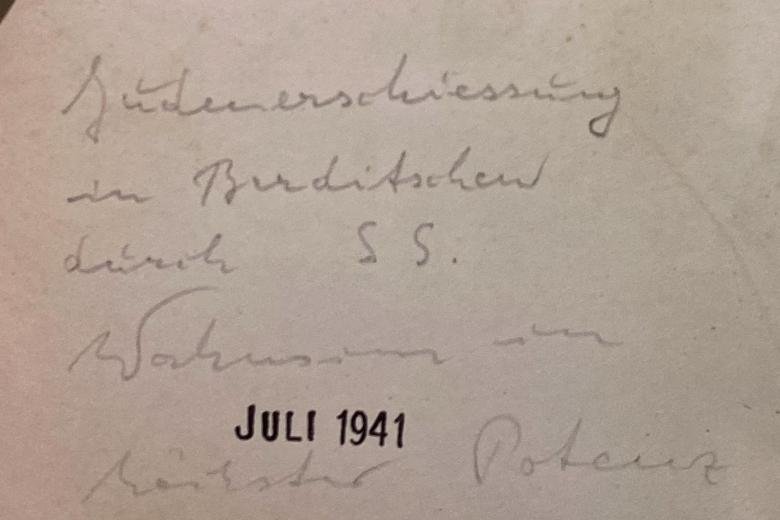 Judenerschiessung
in Berditschew
durch S S.
Wahnsinn in
JULI 1941
höchster Potenz